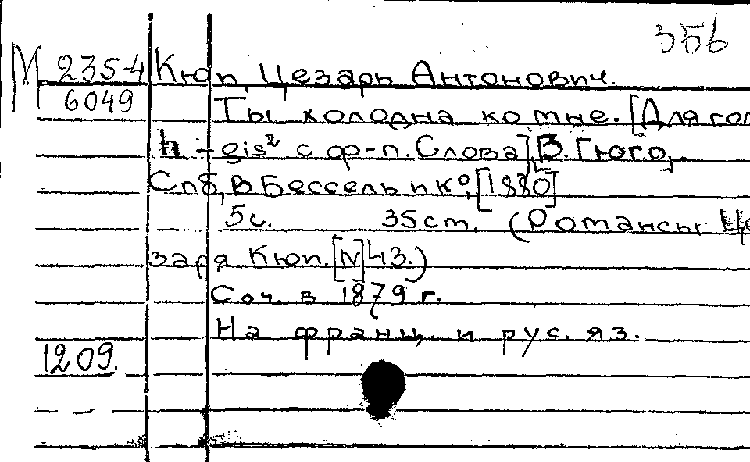 356
М 2354 Кюи, Цезарь Антонович.
6049 Ты холодна ко мне. [Для гол
h - gis² с ф-п. Слова] В. Гюго,
Спб, В. Бессель и к°, [1880]
5 с. 35 ст. (Романсы Це
заря Кюи. [N] 43.)
Соч. в 1879 г.
На франц. и рус. яз.
1209.